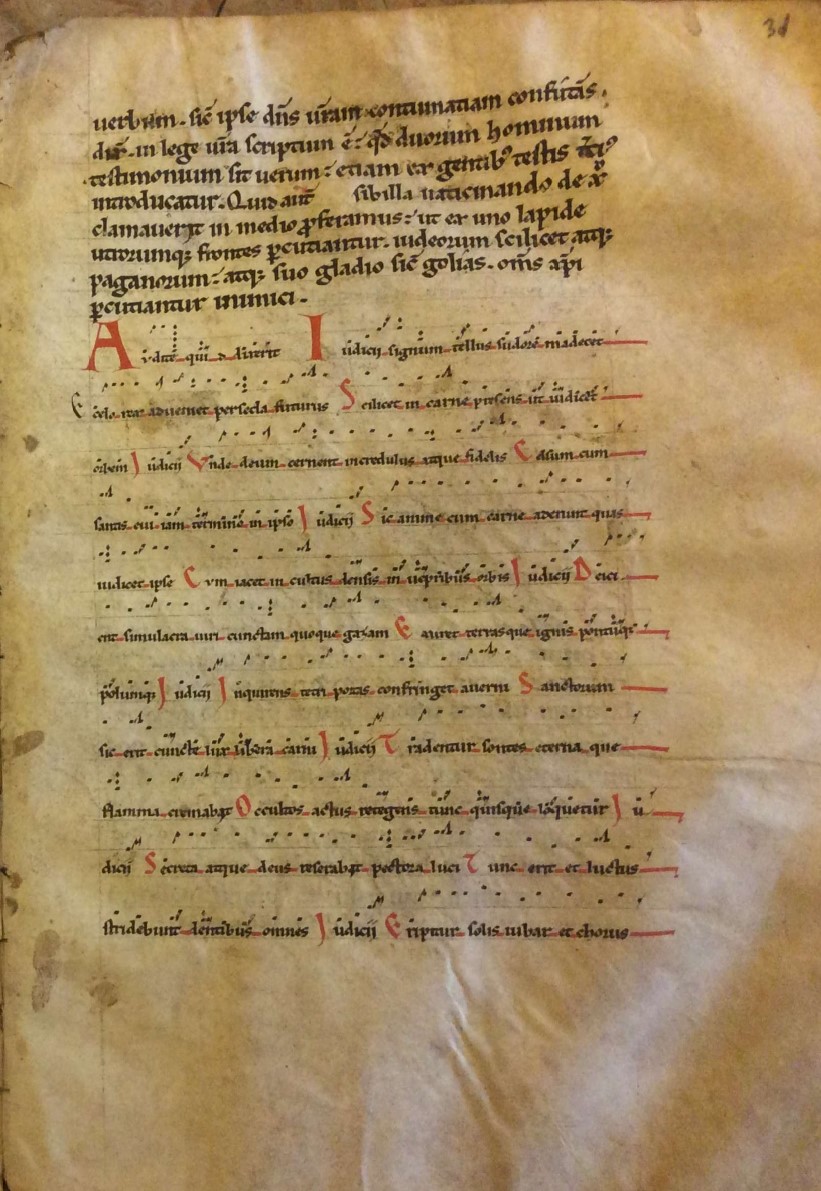 31
uerbum. sic̄ ipse dn̄s ur̄am continuatiam confutās.
dix̄. in lege ur̄a scriptum ē: qd̄ duorum hominum
testimonium sit uerum: etiam ex gentib; testis
introducatur. Quid aut̄ sibilla uaticinando de xp̄o
clamauerit in medio ꝓferamus: ut ex uno lapide
utrorumq; frontes ꝑcutiantur. iudeorum scilicet atq;
paganorum: atq; suo gladio sic̄ golias. om̄s xp̄i
ꝑcutiantur inimici.
Audite quid dixerit Iudicii signum tellus sudore madescet
E celo rex adueniet per secla futurus Scilicet in carne presens ut iudicet
orbem Iudicii Vnde deum cernent incredulus atque fidelis Celsum cum
sanctis eui iam termino in ipso Iudicii Sic anime cum carne aderunt quas
iudicet ipse Cum iacet incultus densis in uepribus orbis Iudicii Deici
ent simulacra uiri cunctam quoque gazam Exuret terras que ignis pontūq;
polumq; Iudicii Inquirens tetri portas confringet auerni Sanctorum
sic erit cuncte lux libera carni Iudicii Tradentur sontes eterna que
flamma cremabit Occultos actus retegens tunc quisque loquetur Iu
dicii Secreta atque deus reserabit pectora luci Tunc erit et luctus
stridebunt dentibus omnes Iudicii Eripitur solis iubar et chorus